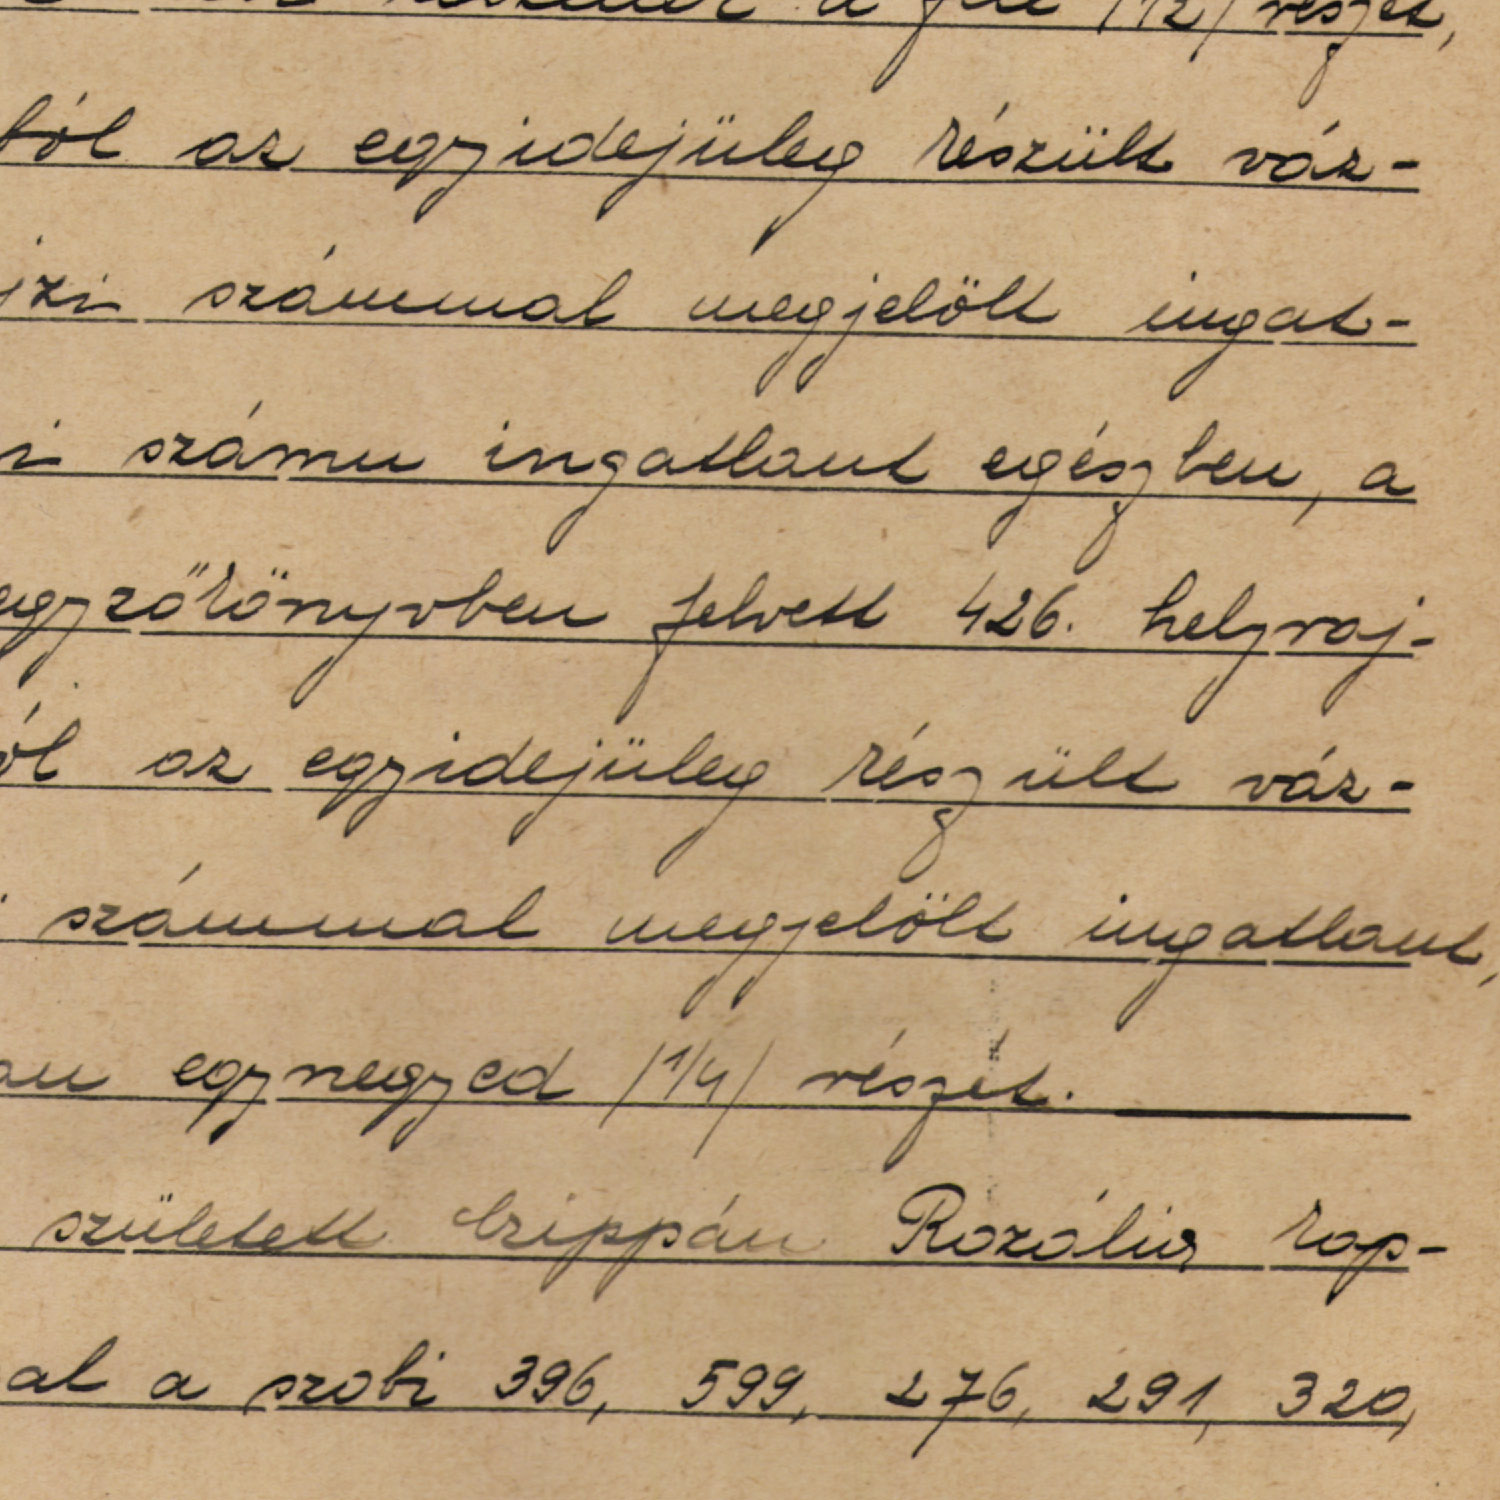 a fele /1/2/ részét,
ból az egyidejüleg készült váz-
jzi számmal megjelölt ingat-
i számu ingatlant egészben, a
egyzőkönyvben felvett 426. helyraj-
ól az egyidejüleg készült váz-
számmal megjelölt ingatlant,
an egynegyed /1/4/ részét.
született Czippán Rozália kap-
al a szobi 396, 599, 276, 291, 320,